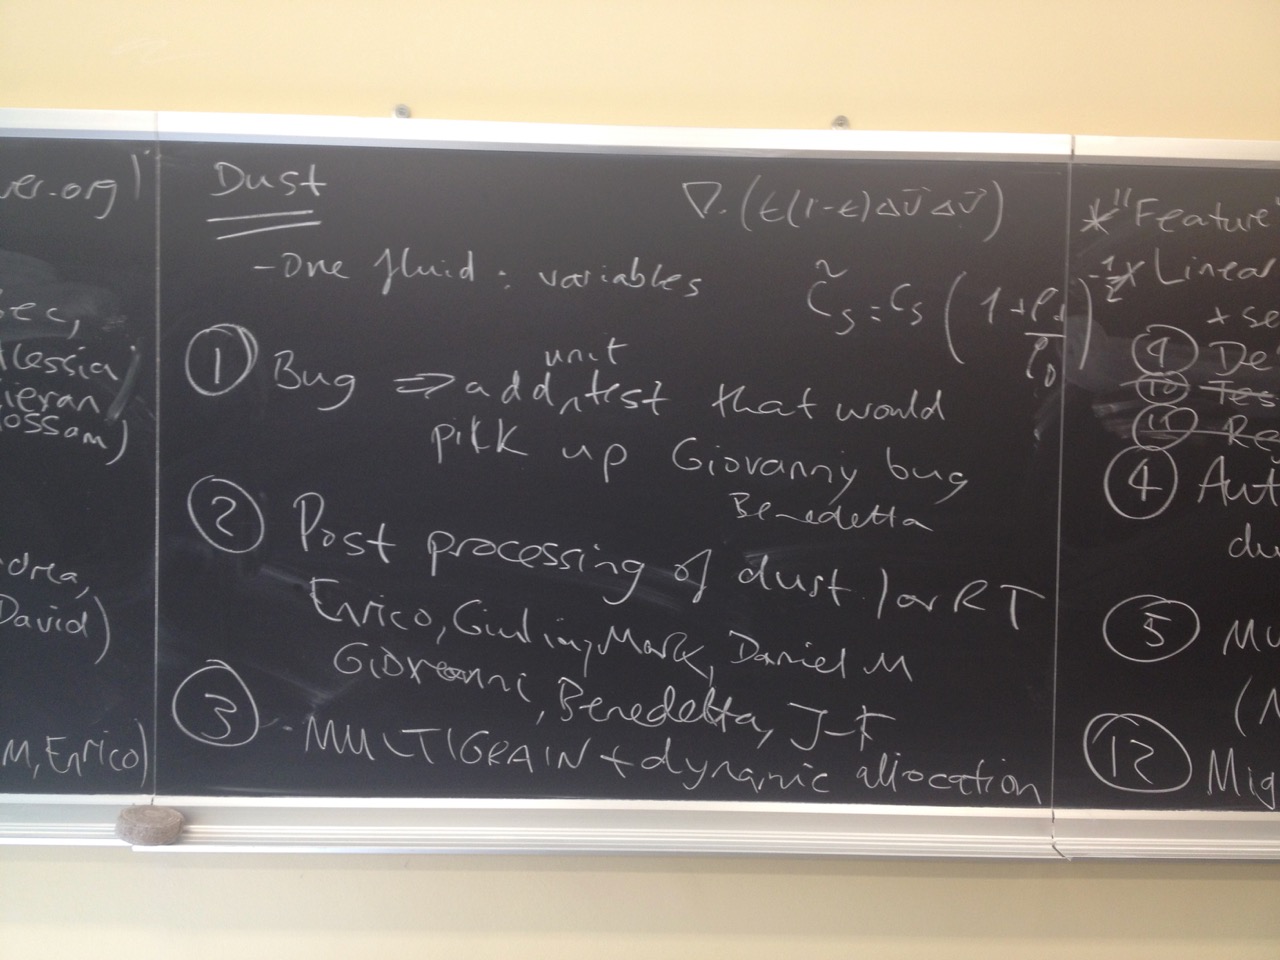 ver.org)
ec,
Alessia
ieran
ossam)
ndrea,
David)
M, Enrico)
Dust
∇·(ε(1-ε)Δv⃗ Δv⃗)
- One fluid : variables
c̃s = cs (1 + ρd/ρ0)^-1/2
① Bug ⇒ add unit test that would
pikk up Giovanny bug
Benedetta
② Post processing of dust for RT
Enrico, Giulia, Mark, Daniel M
Giovanni, Benedetta, J-F
③ - MULTIGRAIN + dynamic allocation
* "Feature"
* Linear
+ se
⑨ De
⑩ Tes
⑪ Re
④ Aut
du
⑤ Mu
⑫ Mig